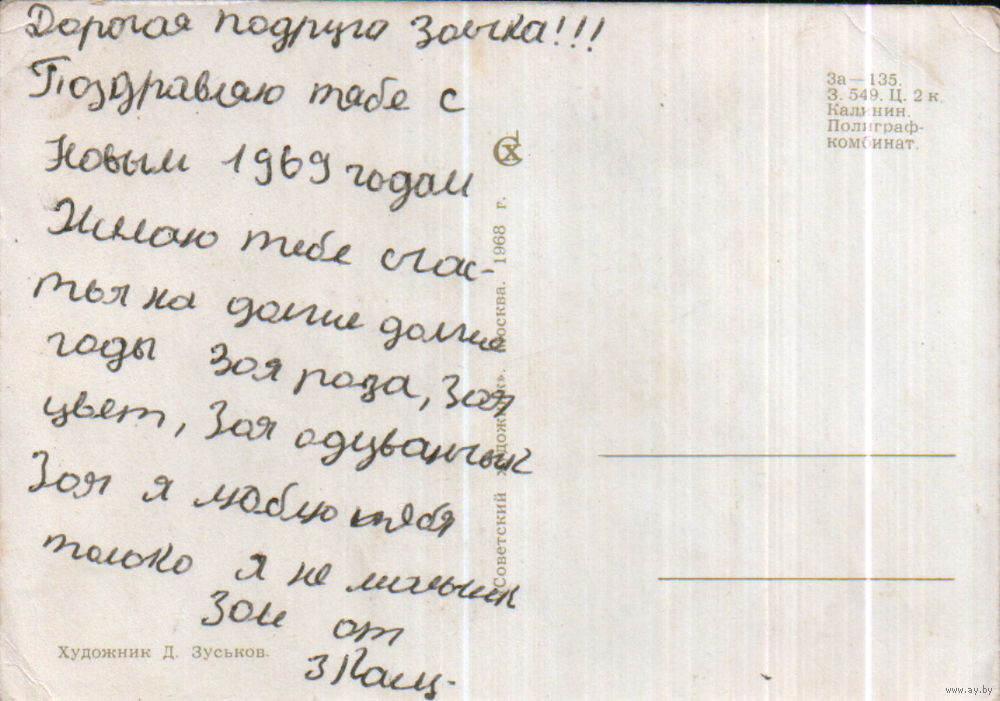 Дорогая подруга Зоычка!!!
Поздравляю тебе с
Новым 1969 годам
Жилаю тебе счас-
тья на долгие долгие
годы Зоя роза, Зоя
цвет, Зоя одуванчык
Зоя я люблю тебя
только я не мильчик
Зои от
З Кащ.
За — 135.
З. 549. Ц. 2 к.
Калинин.
Полиграф-
комбинат.
Советский художник». Москва. 1968 г.
Художник Д. Зуськов.
www.ay.by